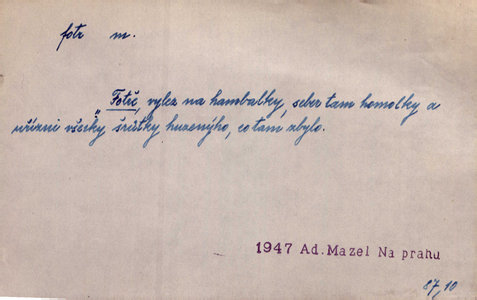 fotr m.
„Fotře, vylez na hambalky, seber tam homolky a
uřízni všecky šrůtky huzenýho, co tam zbylo.
1947 Ad. Mazel Na prahu
87/10